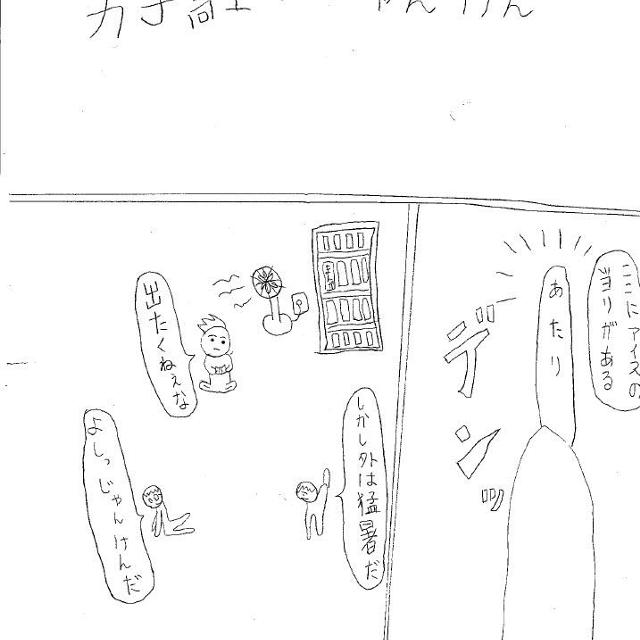 ここにアイスの
当りがある
あたり
デンッ
しかし外は猛暑だ
出たくねぇな
よしっじゃんけんだ